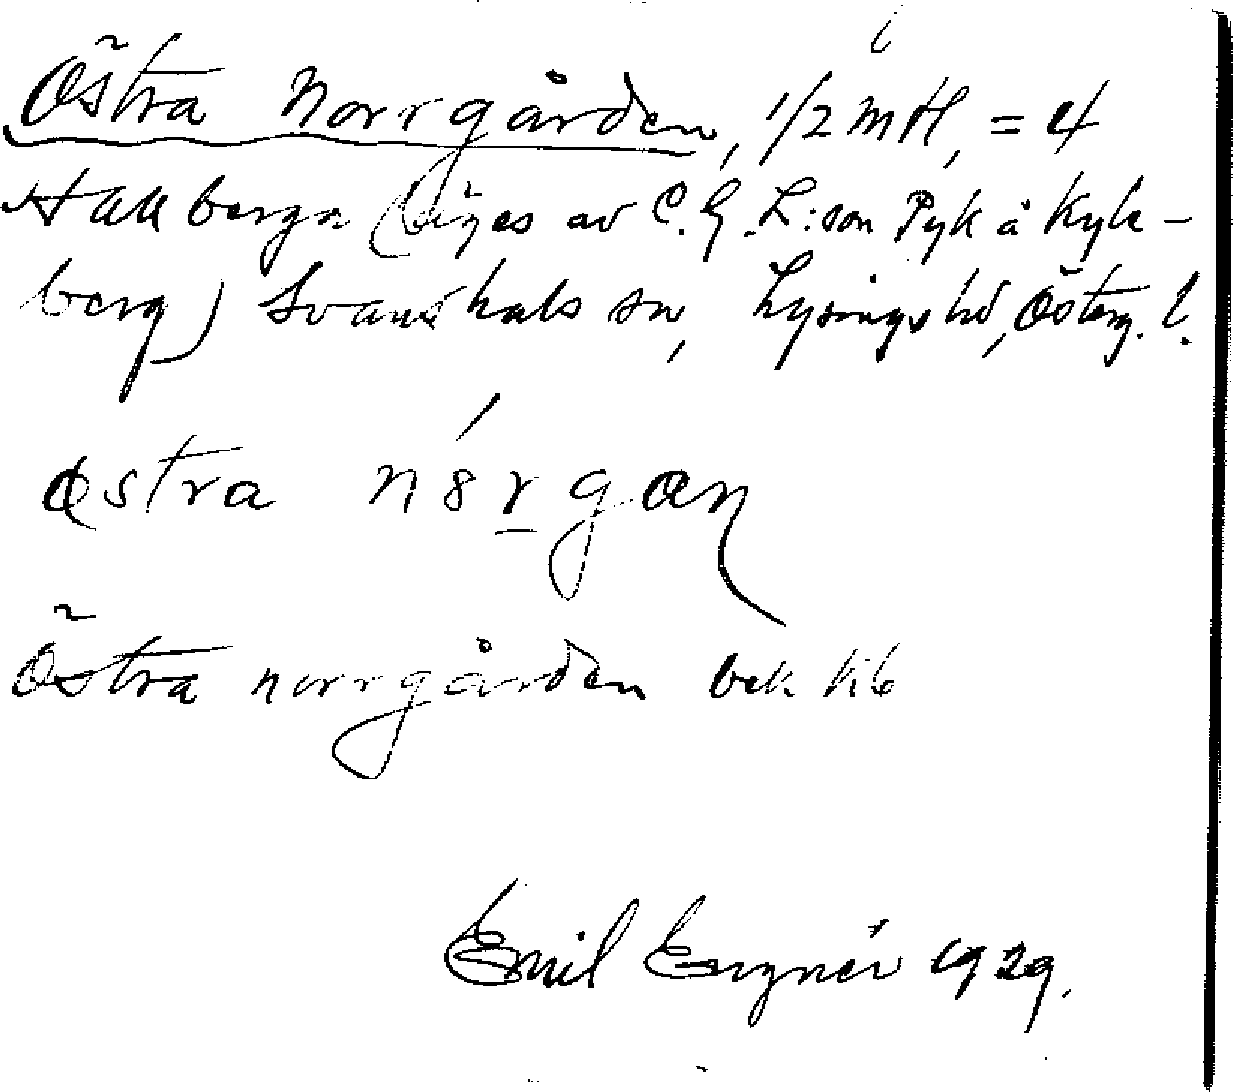 Östra Norrgården, 1/2 mtl, = 4
Hallberga (äges av C. G. L:son Pyk å Kyle-
berg) Svanshals sn, Lysings hd, Österg. l.
östra norrgården bek.
Emil 1929.